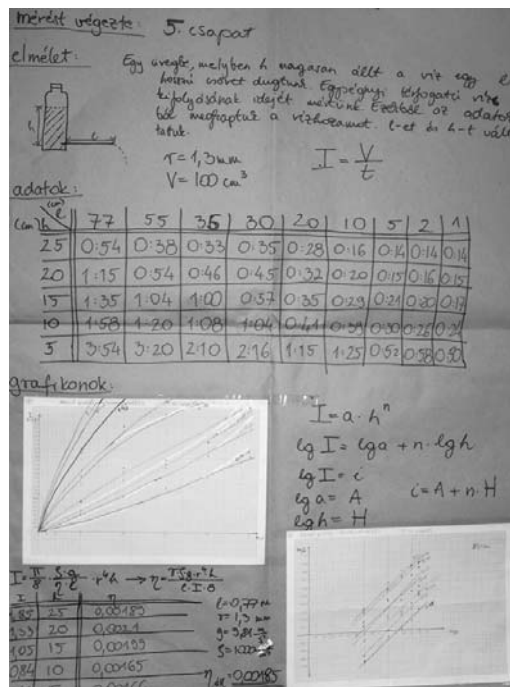 mérést végezte: 5. csapat
elmélet:
Egy üvegbe, melyben h magasan állt a víz egy l
hosszú csövet dugtunk. Egységnyi térfogatú víz
kifolyásának idejét mértünk. Ezekből az adatok-
ból megkaptuk a vízhozamot. l-et és h-t vált
tattuk.
r = 1,3 mm
V = 100 cm³
I = V/t
h
l
adatok:
(cm) l
(cm) h 77 55 35 30 20 10 5 2 1
25 0:54 0:38 0:33 0:35 0:28 0:16 0:14 0:14 0:14
20 1:15 0:54 0:46 0:45 0:32 0:20 0:15 0:16 0:15
15 1:35 1:04 1:00 0:57 0:35 0:29 0:21 0:20 0:17
10 1:58 1:20 1:08 1:04 0:41 0:39 0:30 0:26
5 3:54 3:20 2:10 2:16 1:15 1:25 0:52 0:58 0:50
grafikonok:
I = a · hⁿ
lg I = lg a + n · lg h
lg I = i
lg a = A
i = A + n · H
lg h = H
I h η
1,85 25 0,00185
1,33 20 0,0021
1,05 15 0,00199
0,84 10 0,00165
l = 0,77 m
r = 1,3 mm
g = 9,81
0,00185